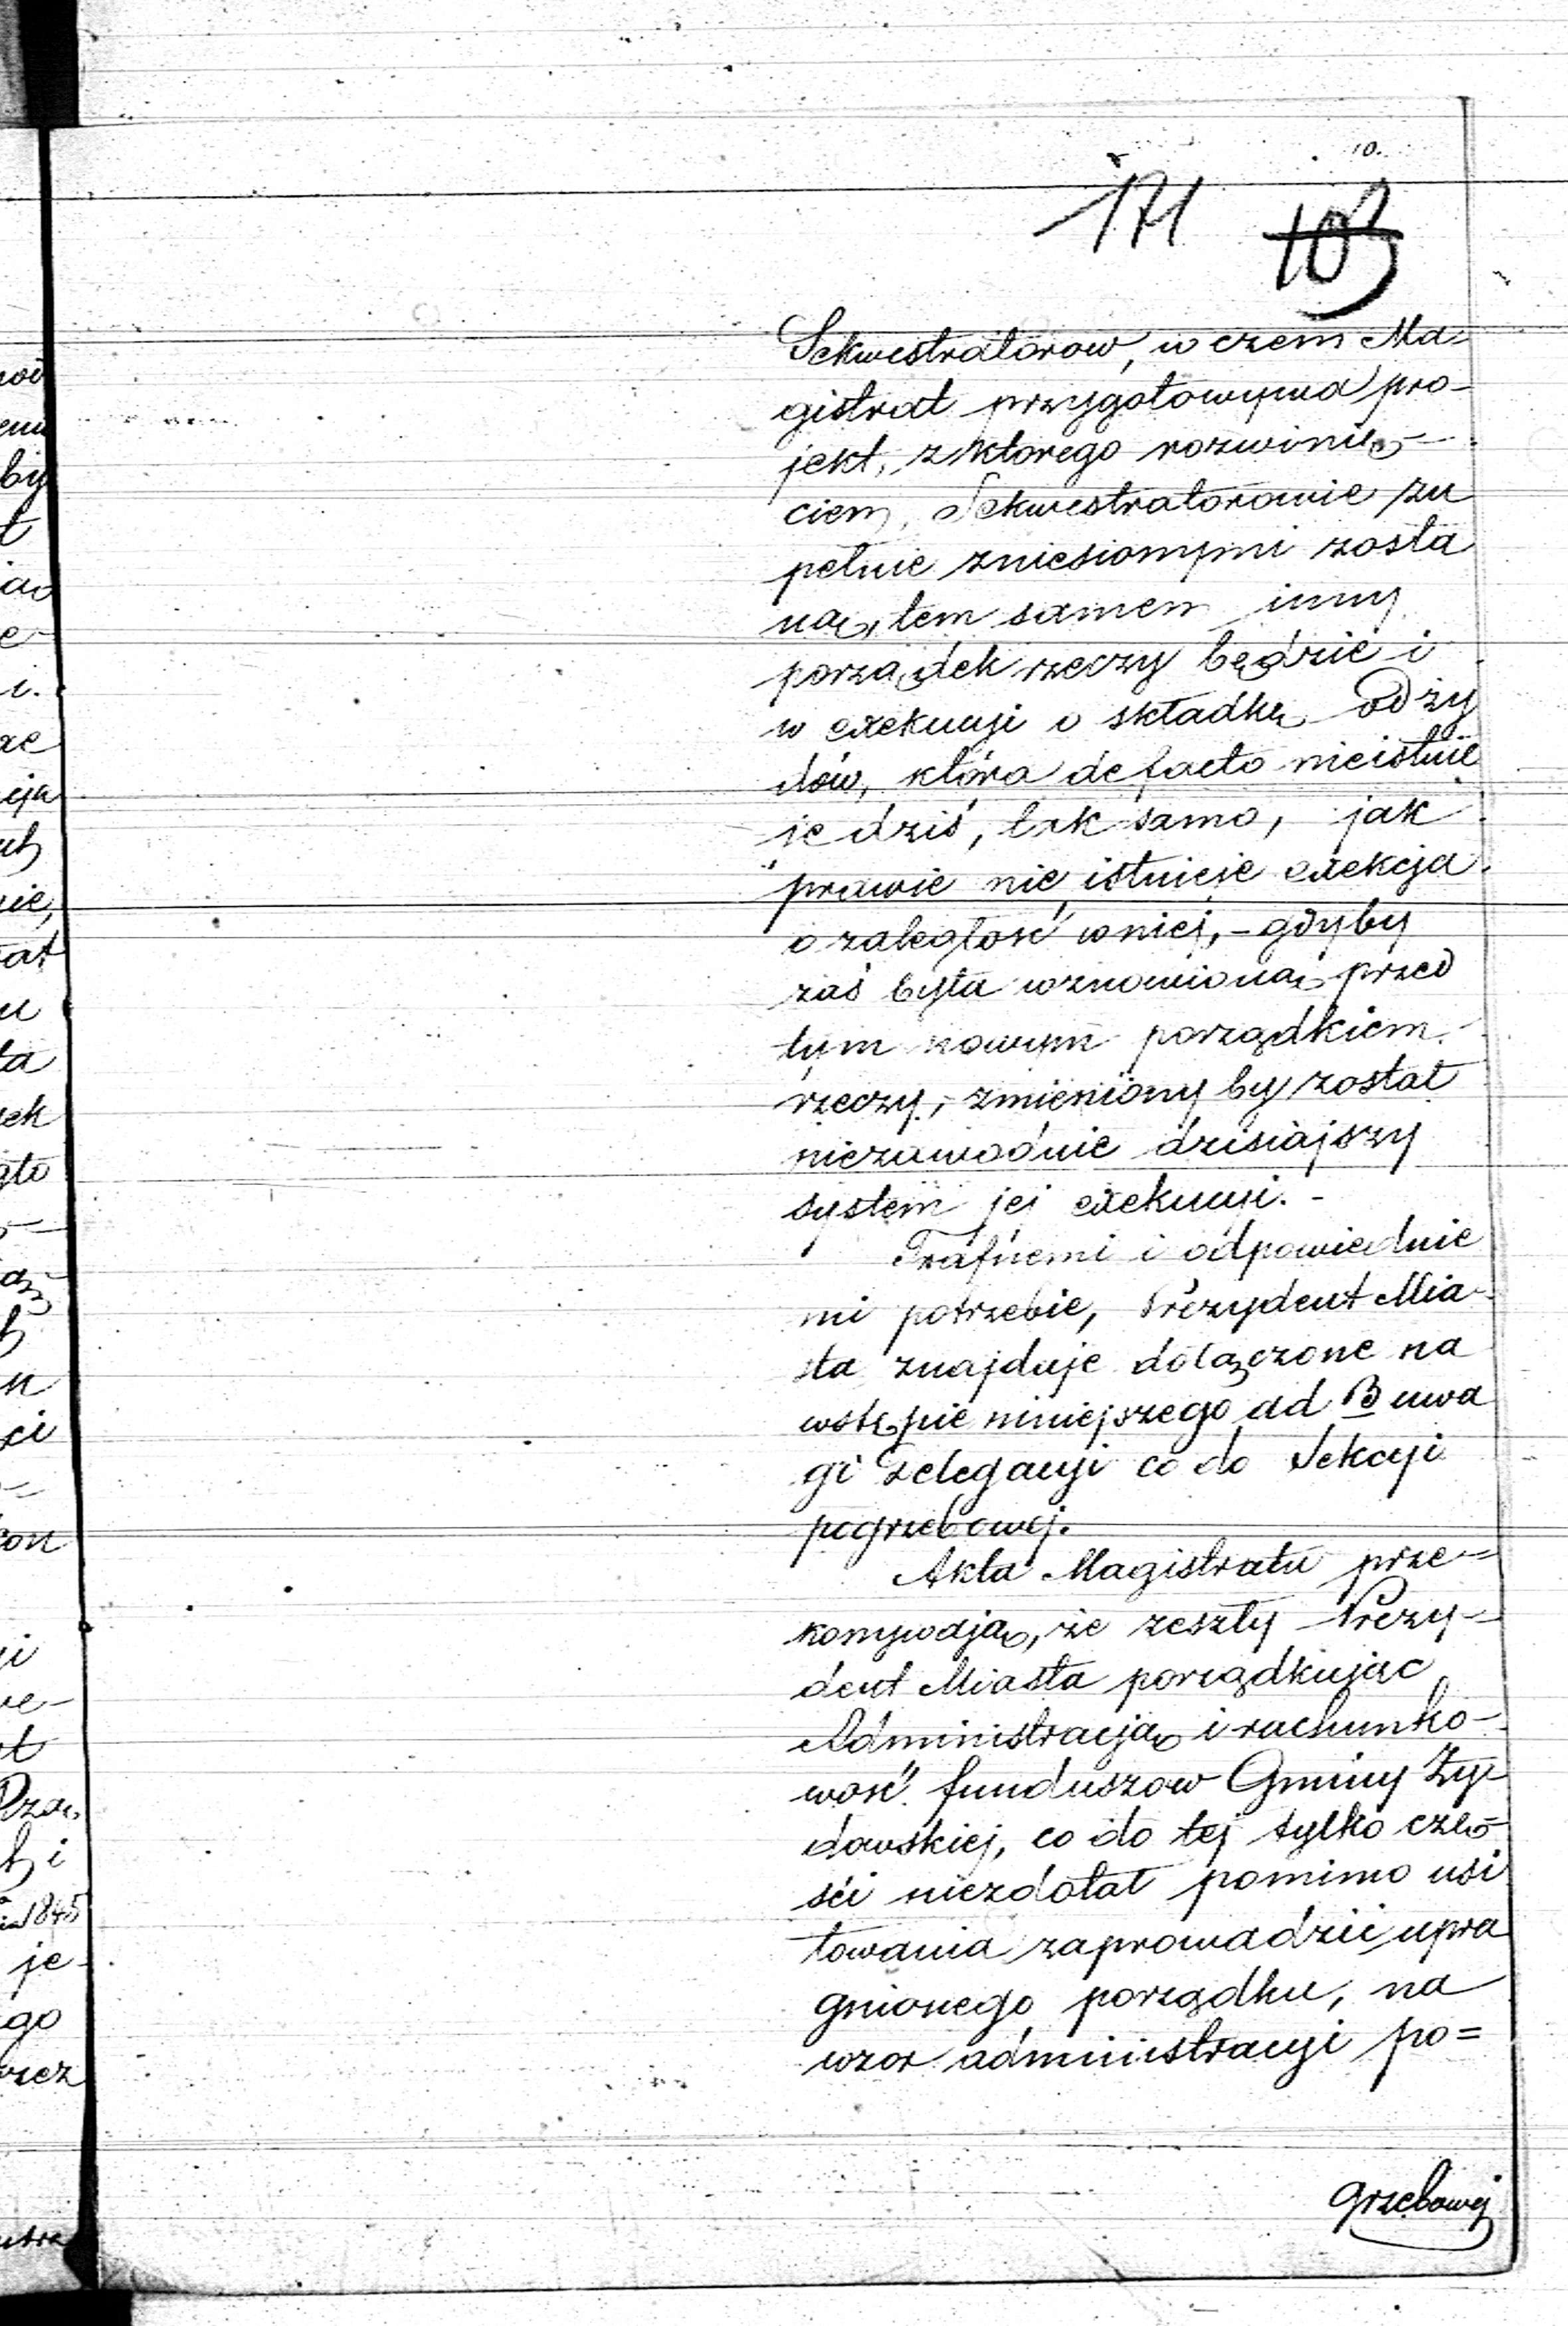 10.
171 103
Sekwestratorow, w czem Ma=
gistrat przygotowywa pro-
jekt, z ktorego rozwinię-
ciem, Sekwestratorowie zu
pełnie zniesionymi zosta
ną, tem samem inny
porządek rzeczy będzie i
w exekucyi o składkę od ży
dów, która de facto nieistnie
je dziś, tak samo, jak
prawie nie istnieje exekcja
o zaległość w niej, - gdyby
zaś była wznowioną przed
tym nowym porządkiem
rzeczy, zmieniony by został
niezawodnie dzisiajszy
system jej exekucyi. -
Trafnemi i odpowiednie
mi potrzebie, Prezydent Mia-
sta znajduje dołączone na
wstępie niniejszego ad B uwa
gi Delegacyi co do Sekcyi
pogrzebowej.
Akta Magistratu prze=
konywają, że zeszły Prezy=
dent Miasta porządkując
Administracją i rachunko-
wość funduszow Gminy Ży
dowskiej, co do tej tylko czę-
ści niezdołał pomimo usi
łowania zaprowadzić upra
gnionego porządku, na
wzor administracyi po=
grzebowej